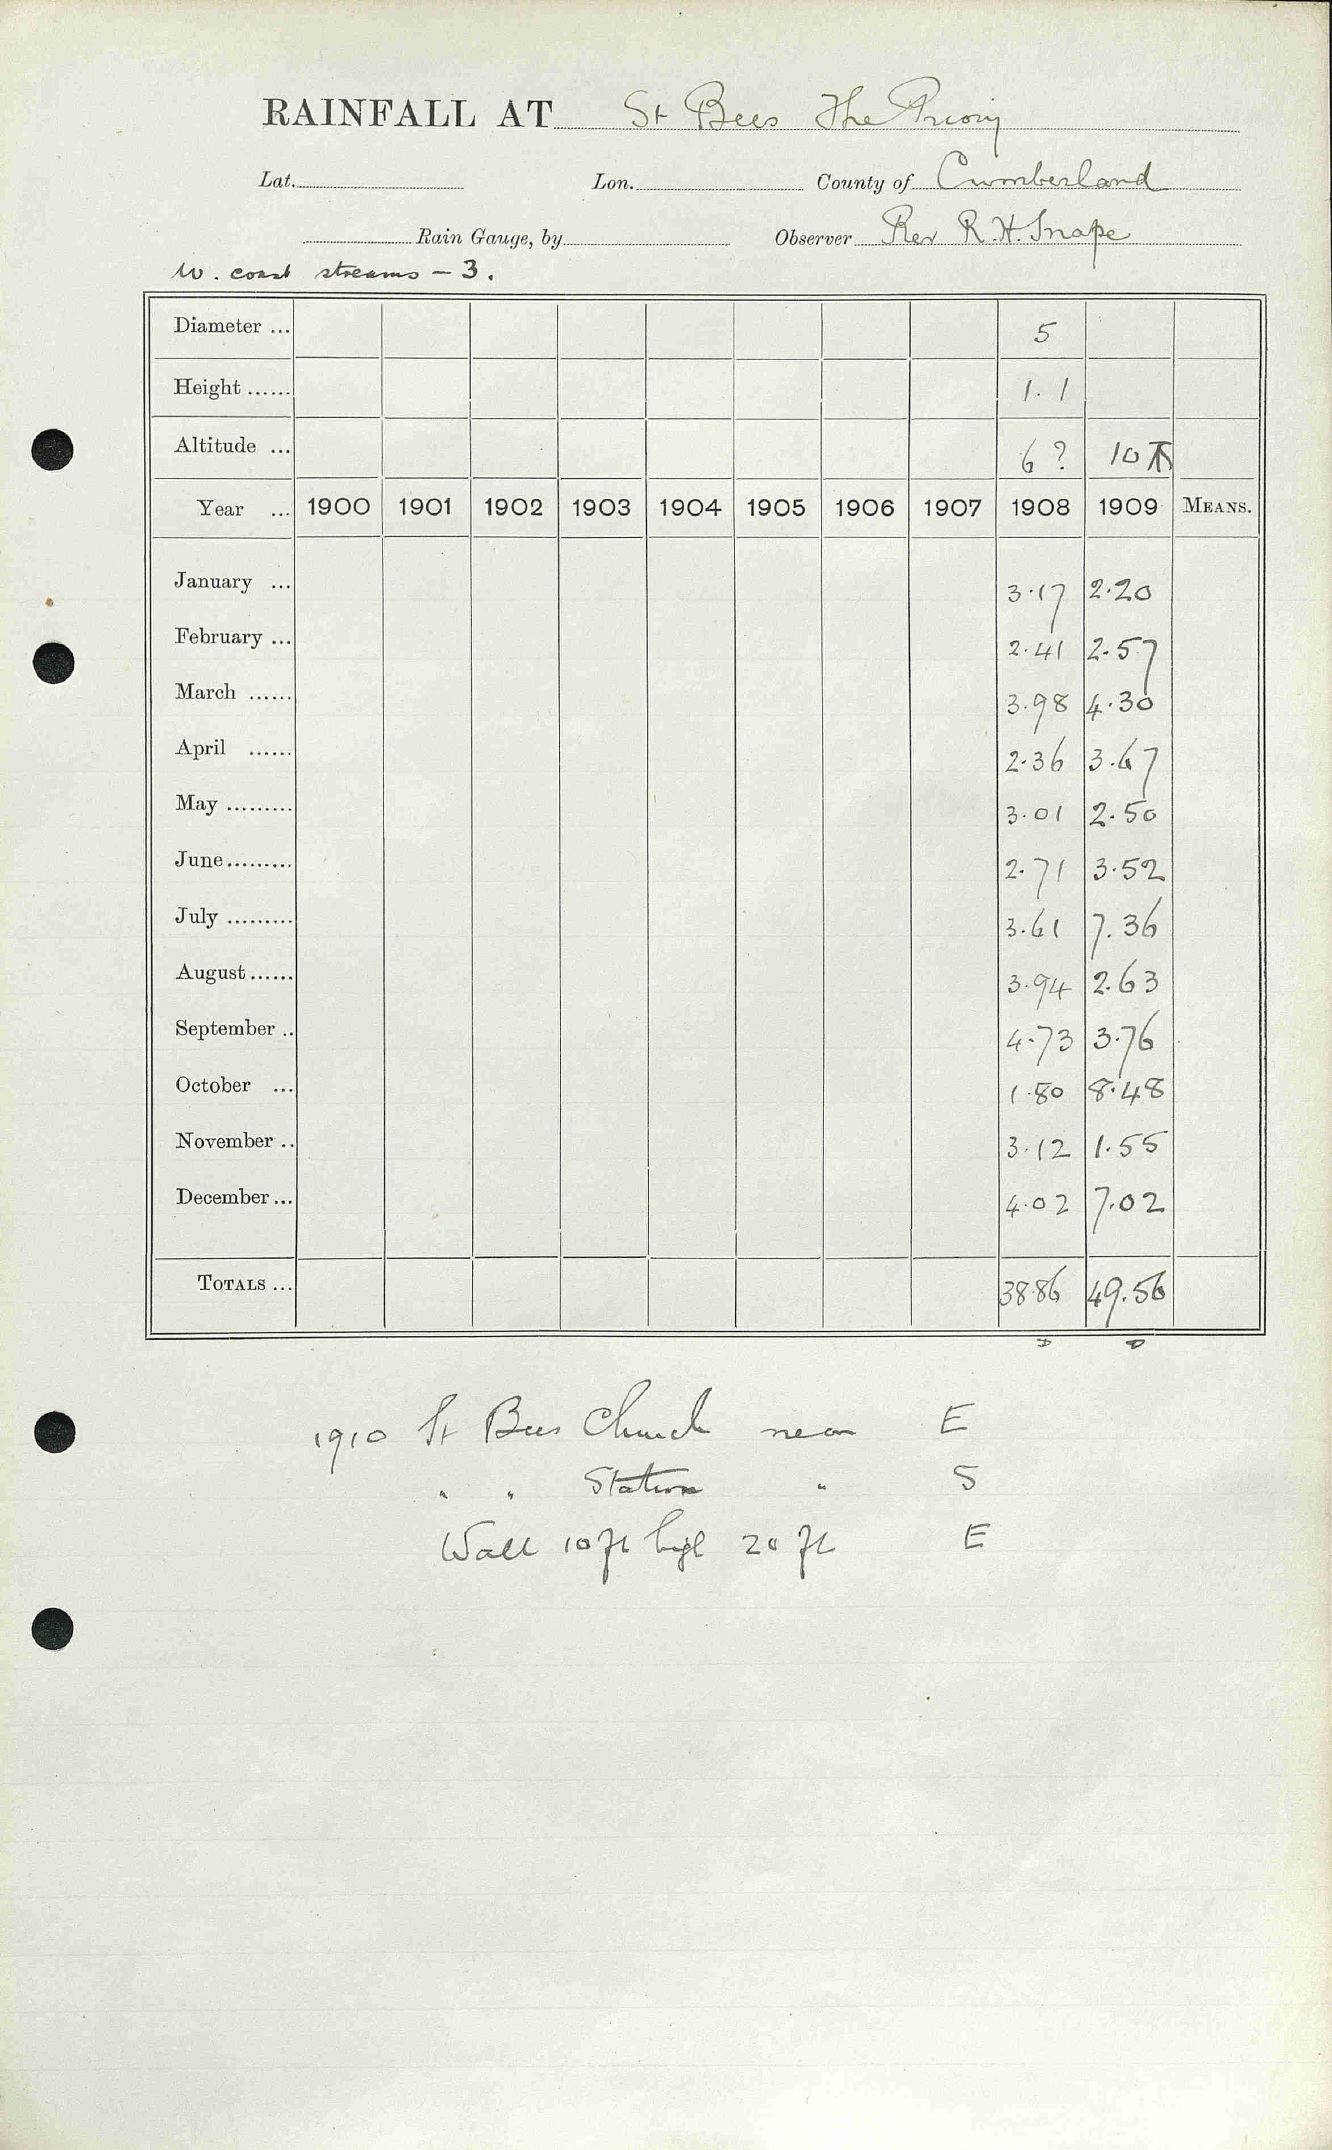 RAINFALL AT St Bees The Priory
Lat. Lon. County of Cumberland
Rain Gauge, by Observer Rev R.H. Snape
W. coast streams - 3.
Diameter ... 5
Height ...... 1.1
Altitude ... 6? 10
Year ... 1900 1901 1902 1903 1904 1905 1906 1907 1908 1909 MEANS.
January ... 3.17 2.20
February ... 2.41 2.57
March ...... 3.98 4.30
April ...... 2.36 3.67
May ......... 3.01 2.50
June ......... 2.71 3.52
July ......... 3.61 7.36
August ...... 3.94 2.63
September .. 4.73 3.76
October ... 1.80 8.48
November .. 3.12 1.55
December ... 4.02 7.02
TOTALS ... 38.86 49.56
1910 St Bees Church near E
" " Station " S
Wall 10 ft high 20 ft E